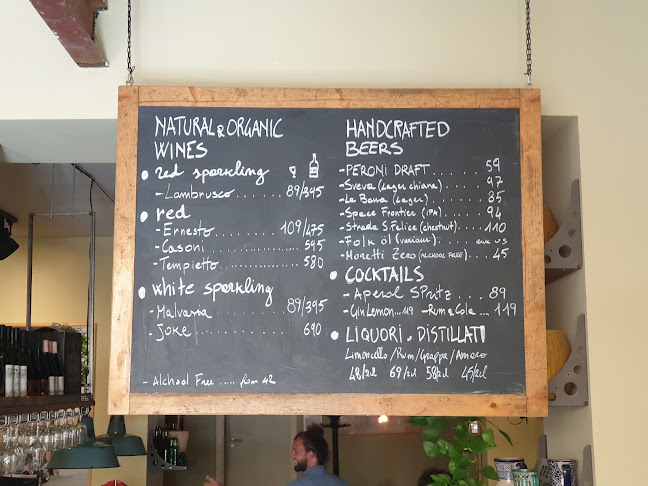 NATURAL & ORGANIC
WINES
red sparkling
- Lambrusco ........ 89/395
red
- Ernesto ........ 109/475
- Casoni ........ 595
- Tempietto ........ 580
white sparkling
- Malvasia ........ 89/395
- Joke ........ 690
- Alchool Free ..... from 42
HANDCRAFTED
BEERS
- PERONI DRAFT ...... 59
- Sveva (Lager chiara) .... 97
- La Bana (Lager) ..... 85
- Space Frontier (IPA) .... 94
- Strada S.Felice (chestnut) .... 110
- Folk öl (various) ....
- Moretti Zero (ALCHOOL FREE) .... 45
COCKTAILS
- Aperol SPritz .. 89
- Gin Lemon ... 119 - Rum & Cola ... 119
LIQUORI - DISTILLATI
Limoncello/Rum/Grappa/Amaro
48/2cl 69/2cl 58/2cl 45/2cl